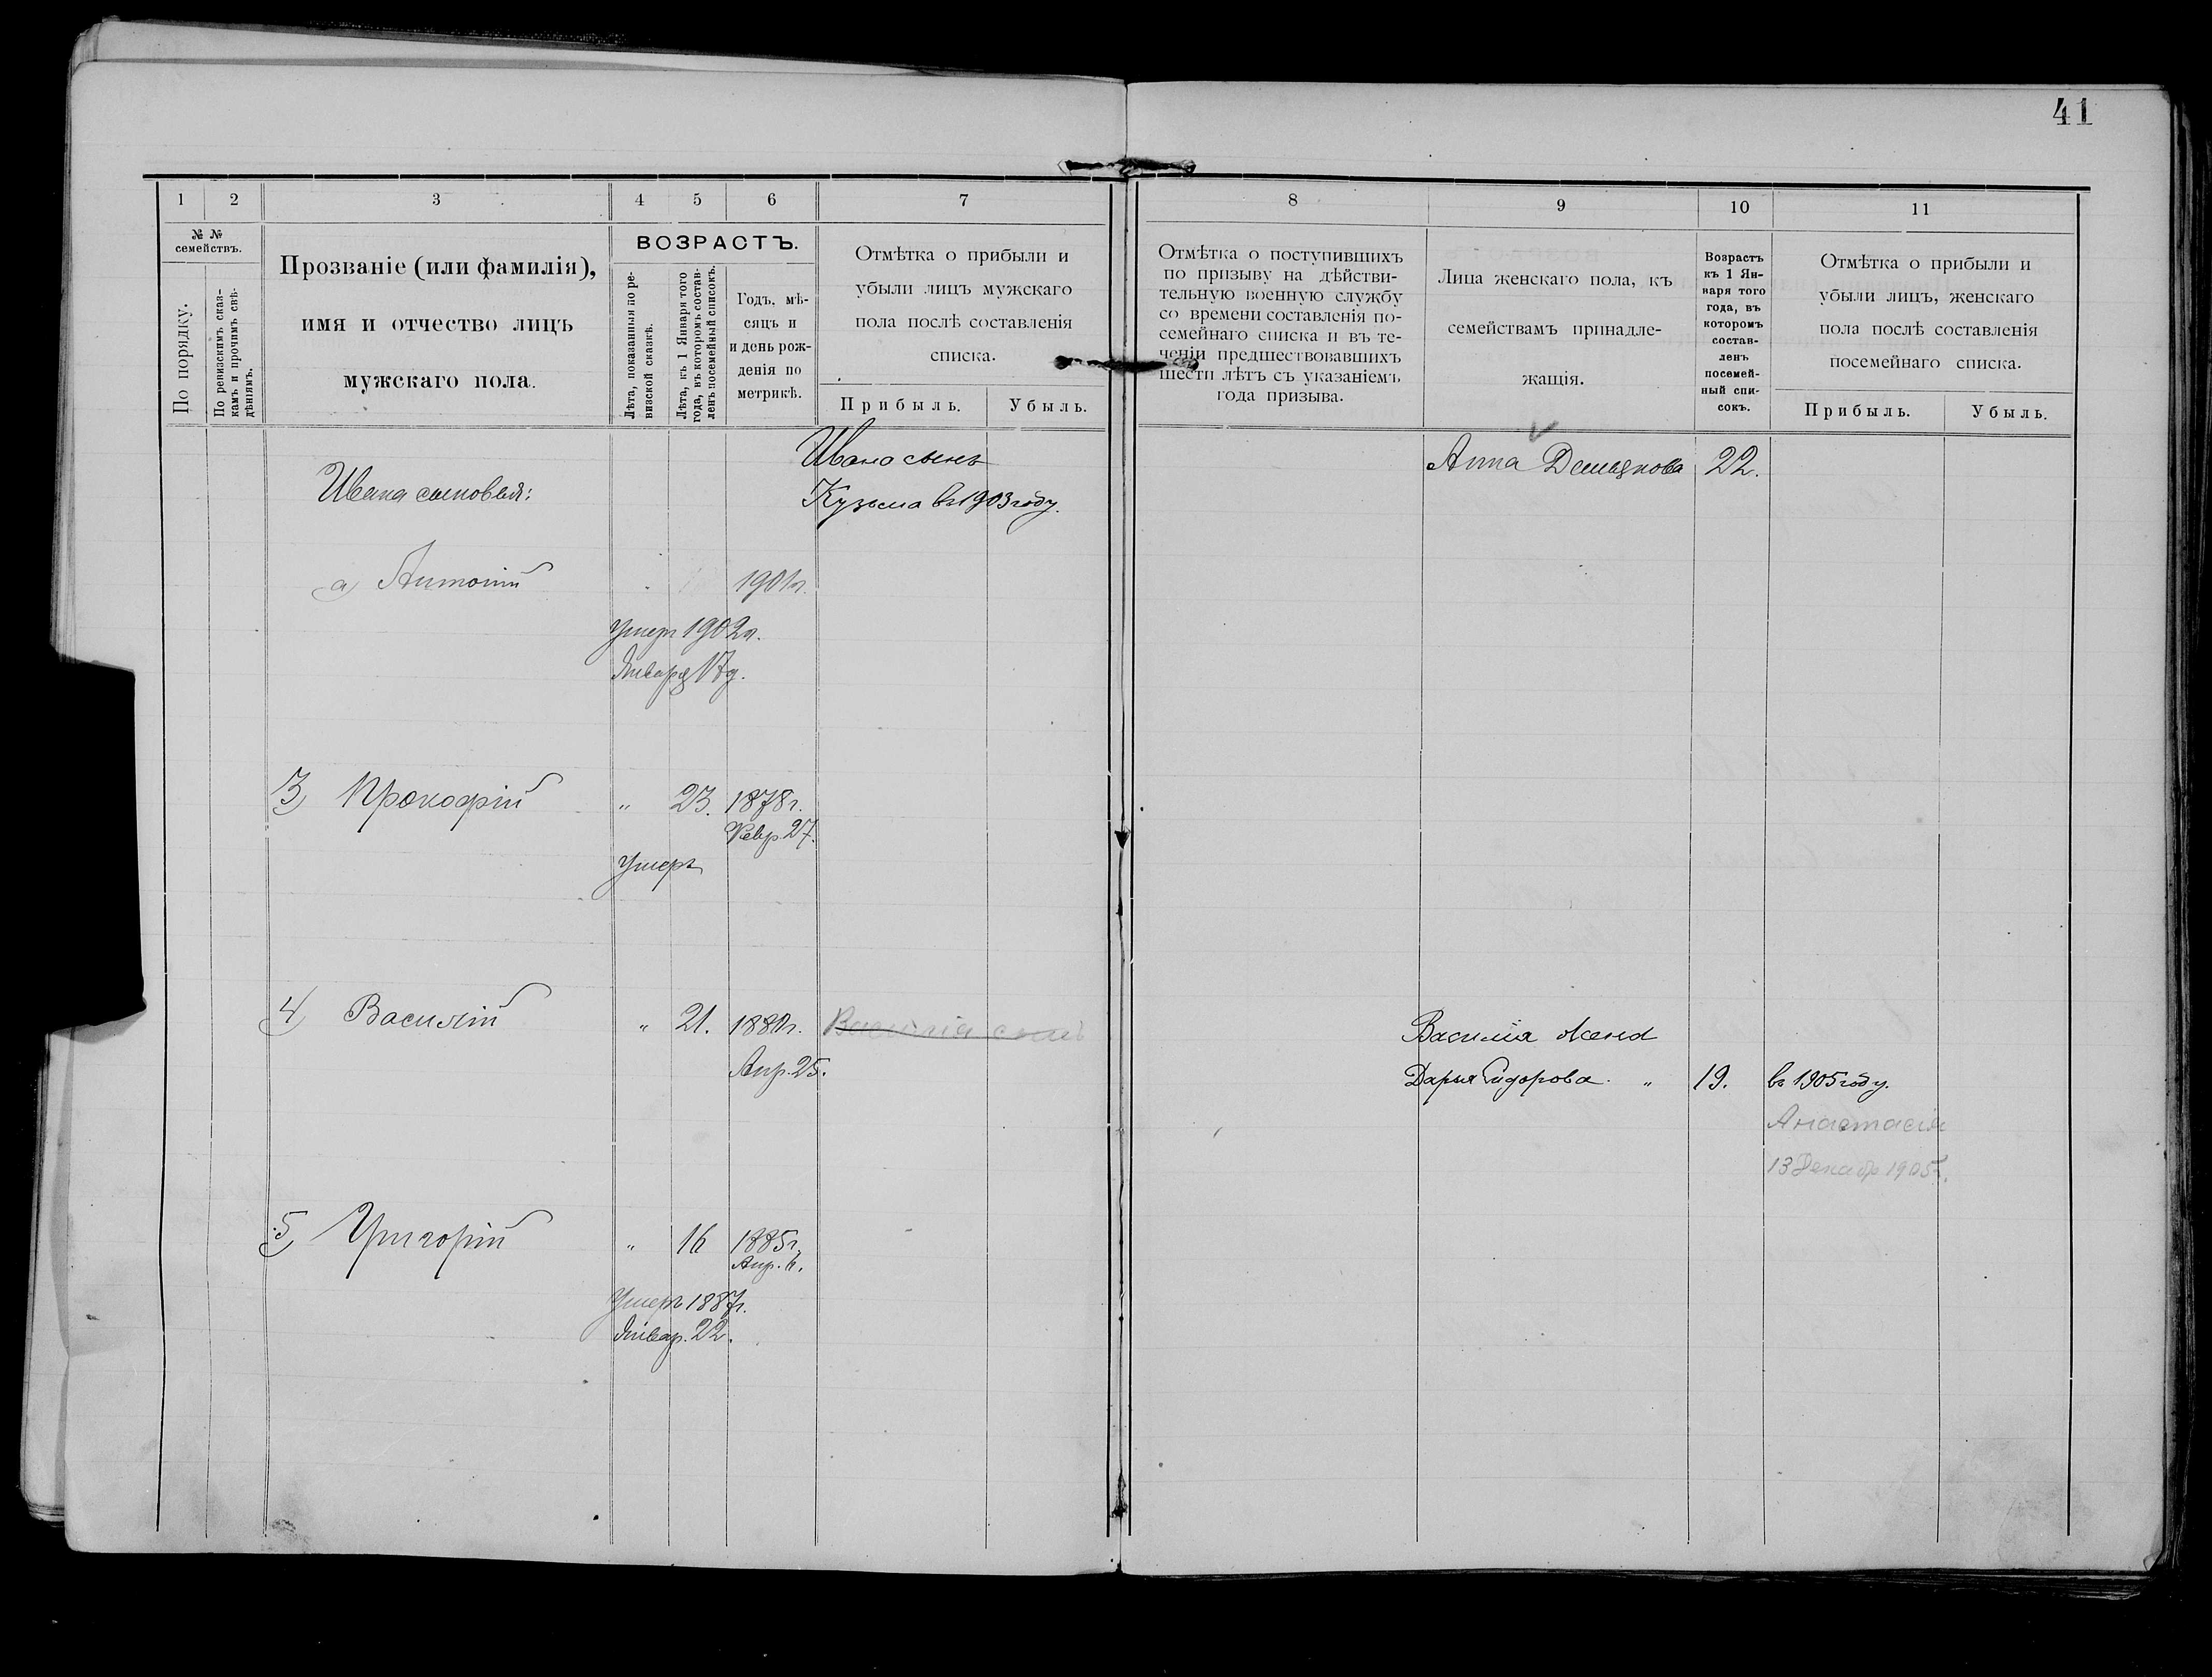 41
1 2 3 4 5 6 7
№ №
семействъ.
По порядку.
По ревизскимъ сказ-
камъ и прочимъ свѣ-
дѣніямъ.
Прозваніе (или фамилія),
имя и отчество лицъ
мужскаго пола.
ВОЗРАСТЪ.
Лѣта, показанныя по ре-
визской сказкѣ.
Лѣта, къ 1 Января того
года, въ которомъ состав-
ленъ посемейный списокъ.
Годъ, мѣ-
сяцъ и
и день рож-
денія по
метрикѣ.
Отмѣтка о прибыли и
убыли лицъ мужскаго
пола послѣ составленія
списка.
Прибыль. Убыль.
Ивана сыновья:
Ивана сынъ
Кузьма въ 1903 году.
а) Антоній " 1901 г.
Умеръ 1902 г.
Января 17 д.
3) Прокофій " 23. 1878 г.
Февр. 27.
Умеръ
4) Василій " 21. 1880 г. Василія сынъ
Апр. 25.
5) Григорій " 16 1885 г.
Апр. 6.
Умеръ 1887 г.
Январ. 22.
8 9 10 11
Отмѣтка о поступившихъ
по призыву на дѣйстви-
тельную военную службу
со времени составленія по-
семейнаго списка и въ те-
ченіи предшествовавшихъ
шести лѣтъ съ указаніемъ
года призыва.
Лица женскаго пола, къ
семействамъ принадле-
жащія.
Возрастъ
къ 1 Ян-
варя того
года, въ
которомъ
состав-
ленъ
посемей-
ный спи-
сокъ.
Отмѣтка о прибыли и
убыли лицъ, женскаго
пола послѣ составленія
посемейнаго списка.
Прибыль. Убыль.
Анна Демьянова 22.
Василія жена
Дарья Сидорова. " 19. въ 1905 году.
Анастасія
13 Декабр 1905 г.